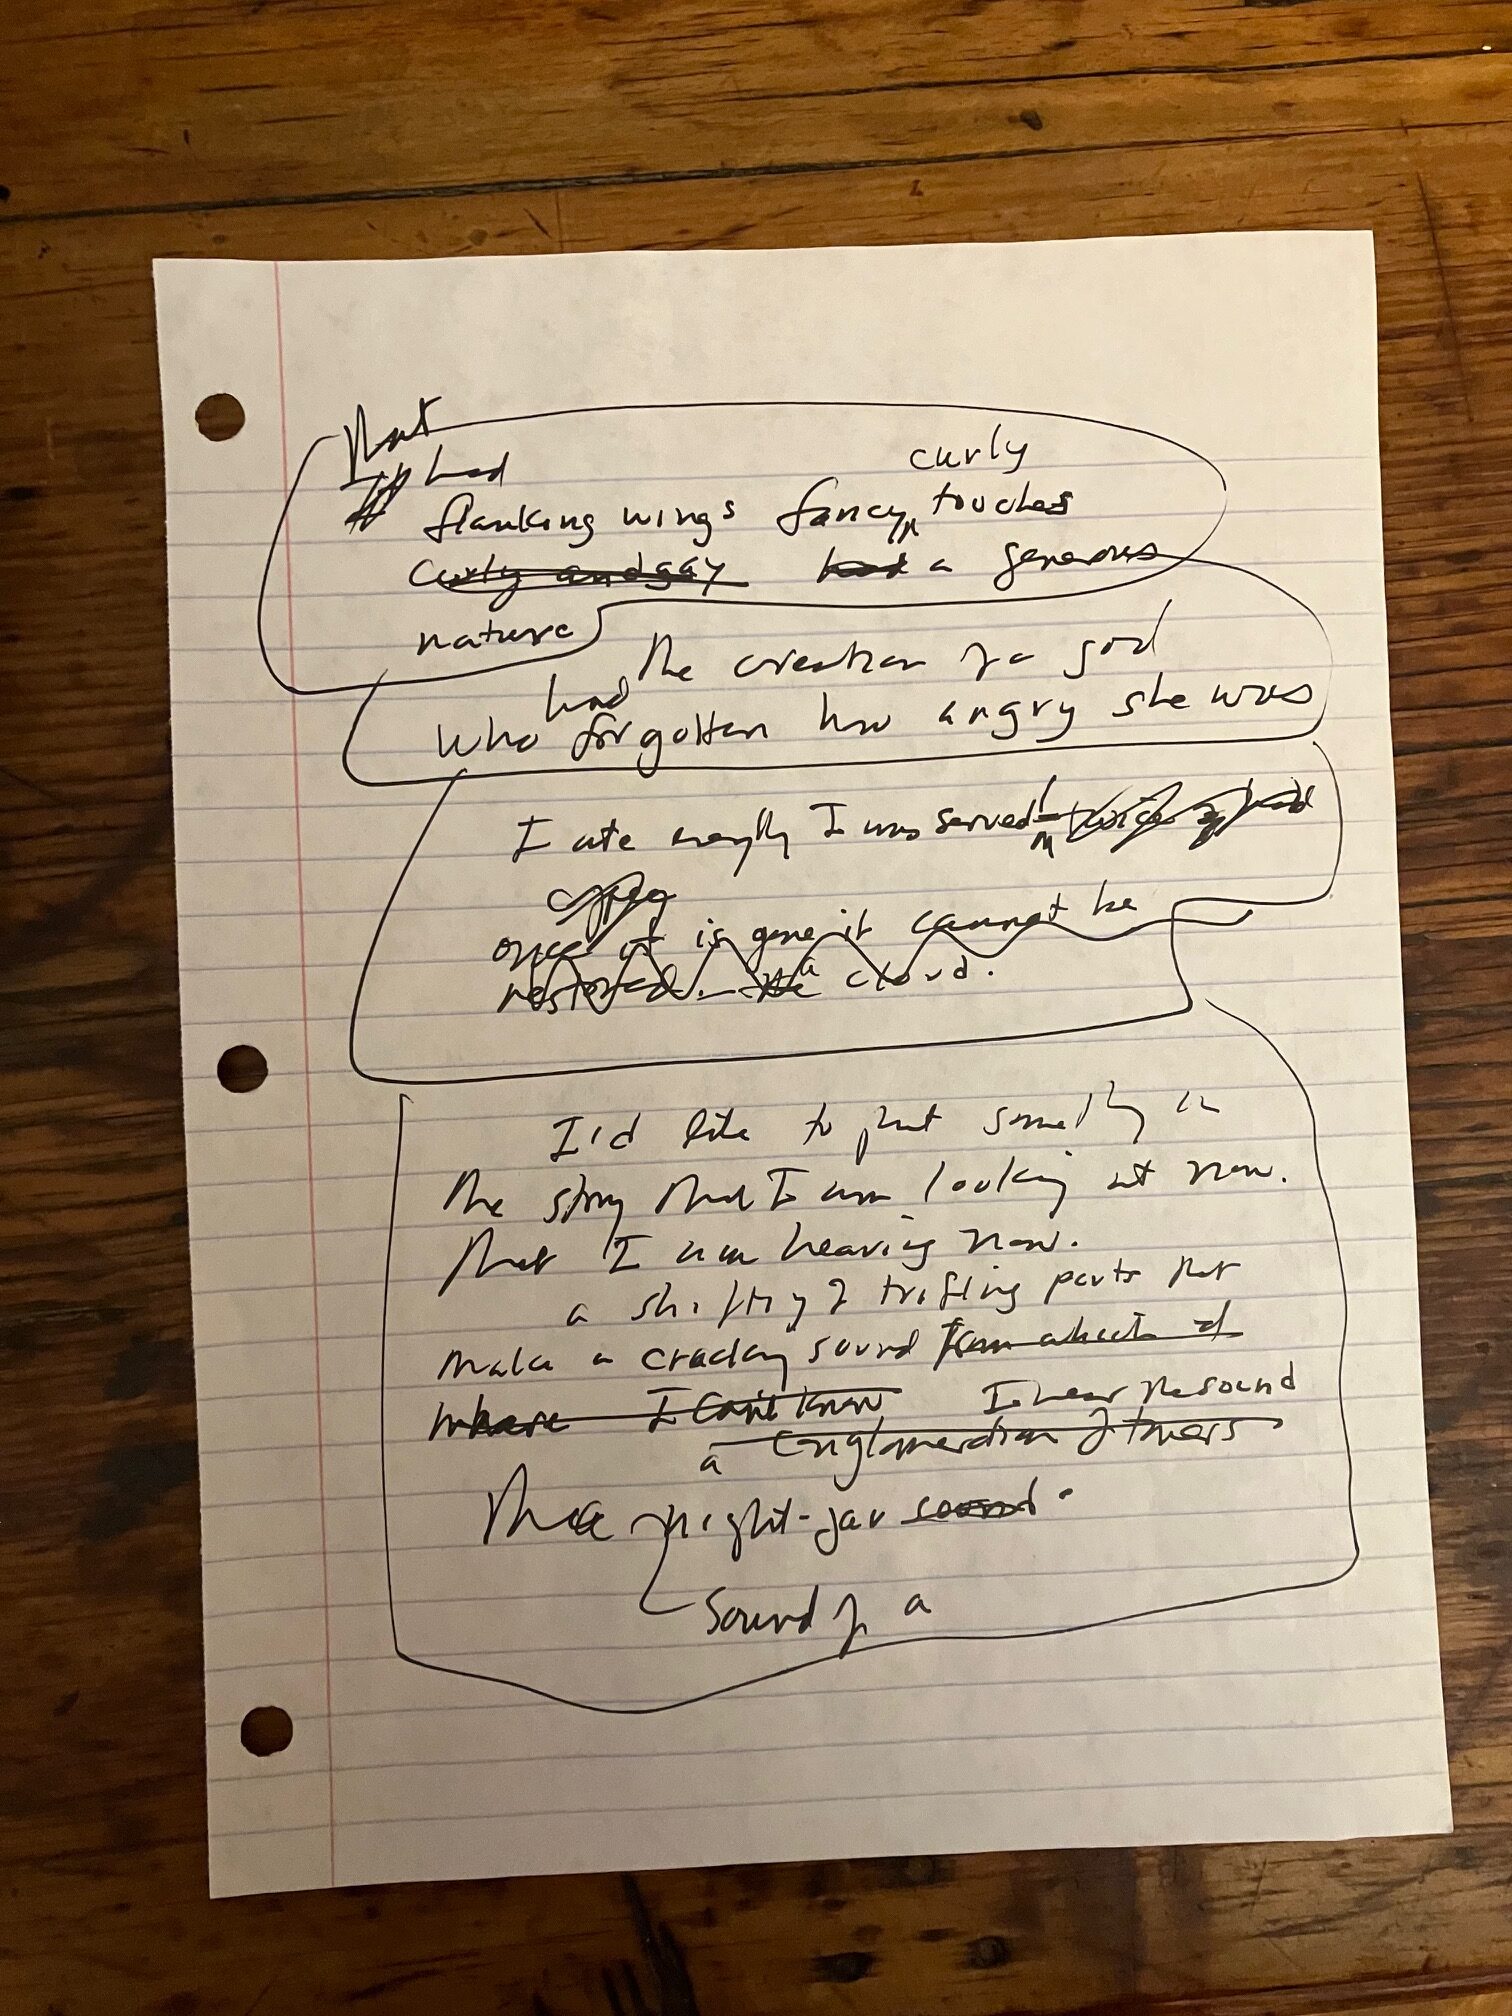 That
had
curly
flanking wings fancy touches
curly and gay had a generous
nature
the creation of a god
had
who forgotten how angry she was
I ate I was served
once it is gone it cannot be
restored. a cloud.
I'd like to put something in
the story that I am looking at now.
that I am hearing now.
a shifting of trifling parts that
make a sound from which
where I can't know I hear the sound
a conglomeration of
The night-jar sound.
sound of a